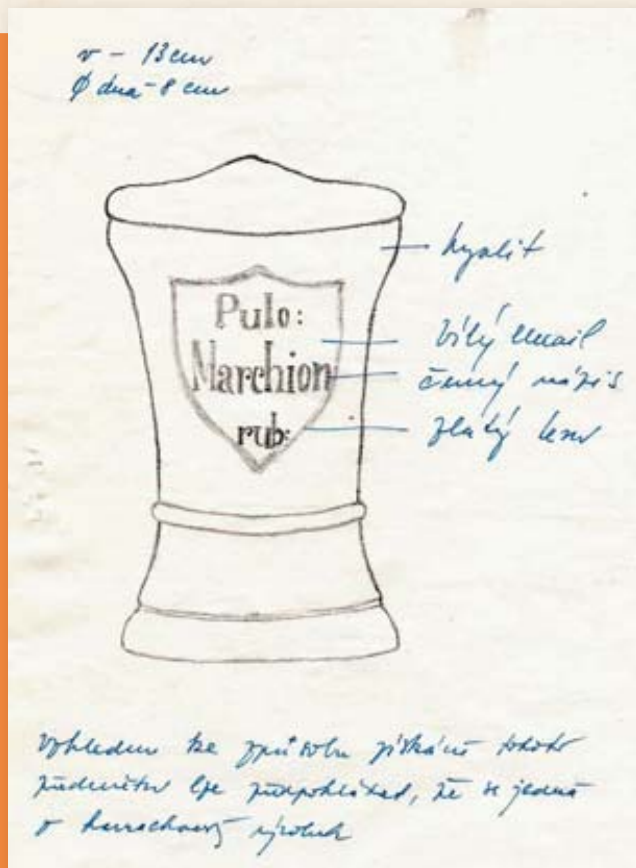 v – 13 cm
Ø dna – 8 cm
hyalit
Pulo:
Marchion
rub:
bílý email
černý nápis
zlatý lem
vzhledem ke způsobu získání tohoto
předmětu lze předpokládat, že se jedná
o harrachovský výrobek